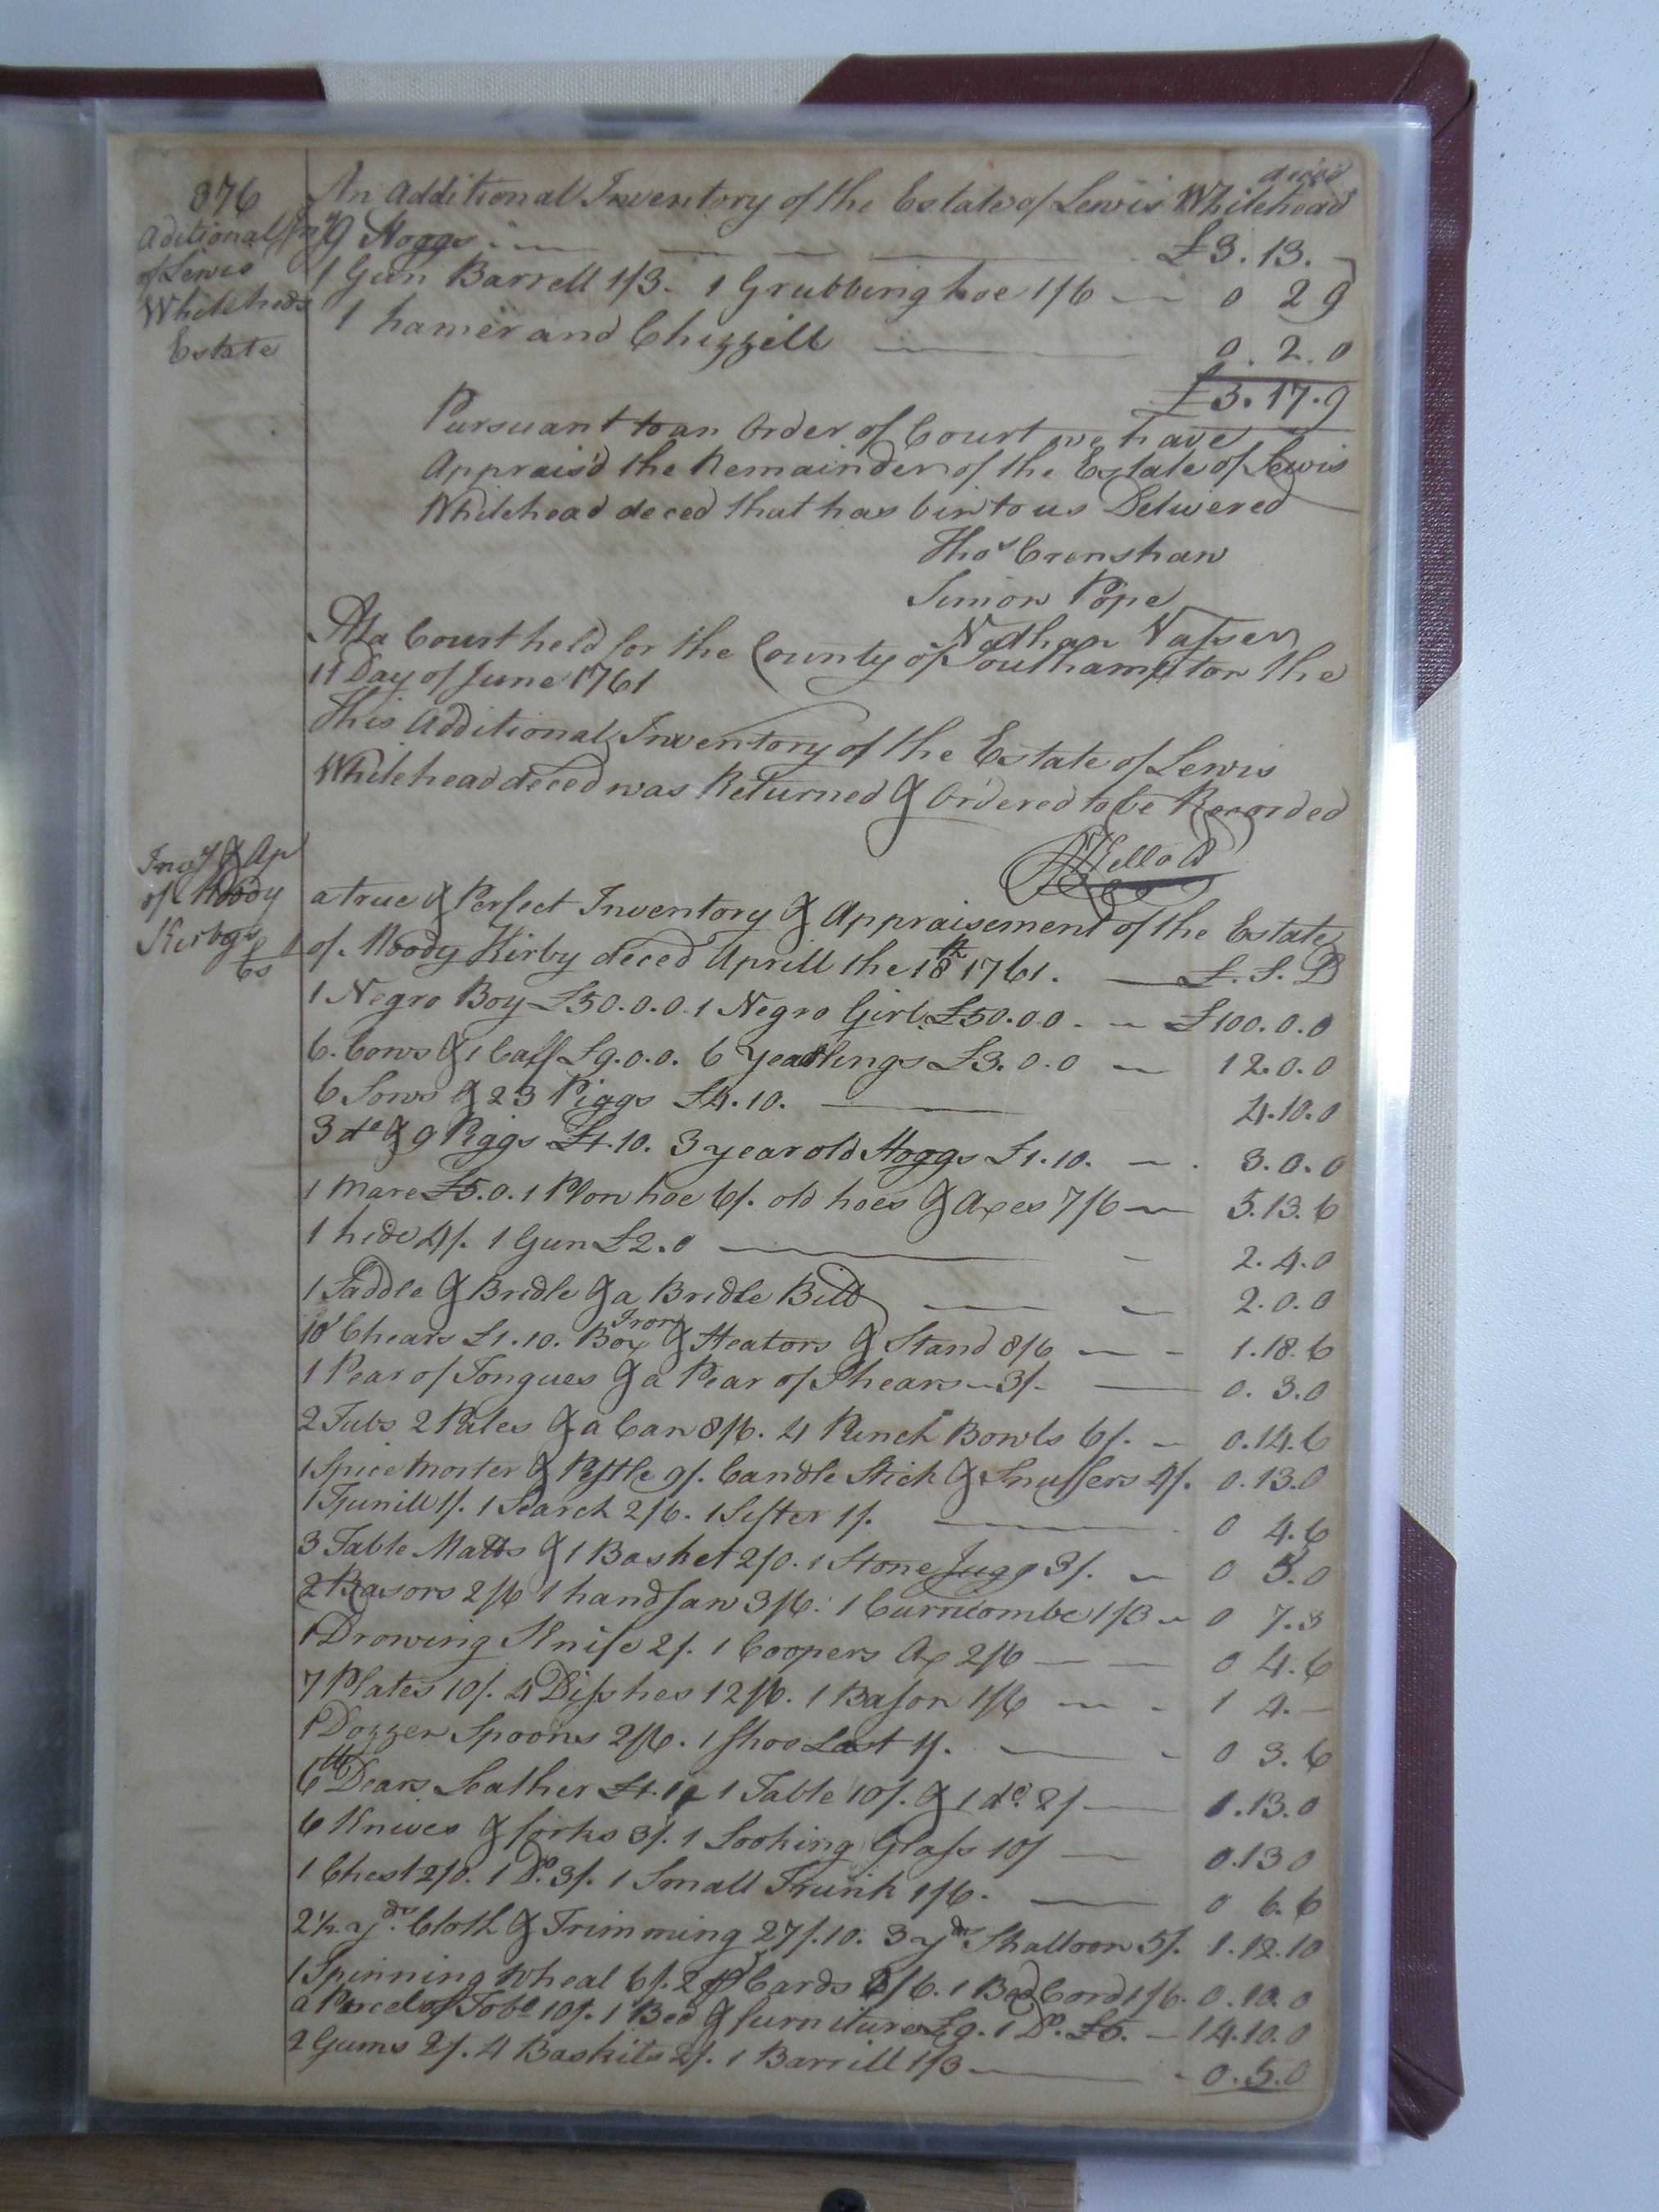 376
Aditional Invy
of Lewis
Whiteheds
Estate
An Additional Inventory of the Estate of Lewis Whitehead deced
9 Hoggs £3.13.
1 Gun Barrell 1/3. 1 Grubbing hoe 1/6 0 2 9
1 hamer and Chizzell 0.2.0
£3.17.9
Pursuant to an Order of Court we have
Apprais'd the Remainder of the Estate of Lewis
Whitehead deced that has bin to us Delivered
Thos Crenshaw
Simon Pope
Nathan Vasser
At a Court held for the County of Southampton the
11 Day of June 1761
This Additional Inventory of the Estate of Lewis
Whitehead deced was Returned & Ordered to be Recorded
Invy & Ap
of Moody
Kirbys
Es
a true & Perfect Inventory & Appraisement of the Estate
of Moody Kirby deced Aprill the 18th 1761. £. S. D
1 Negro Boy £50.0.0. 1 Negro Girl £50.0.0. £100.0.0
6. Cows & 1 Calf £9.0.0. 6 Yearlings £3.0.0 12.0.0
6 Sows & 23 Piggs £4.10. 4.10.0
3 do & 9 Piggs £1.10. 3 year old Hoggs £1.10. 3.0.0
1 Mare £5.0. 1 Plow hoe 6/. old hoes & Axes 7/6 5.13.6
1 hide 4/. 1 Gun £2.0 2.4.0
1 Saddle & Bridle & a Bridle Bitt 2.0.0
10 Chears £1.10. Box Iron & Heators & Stand 8/6 1.18.6
1 Pear of Tongues & a Pear of Shears 3/- 0.3.0
2 Tubs 2 Pales & a Can 8/6. 4 Punch Bowls 6/. 0.14.6
1 Spice Morter & Pestle 9/. Candle Stick & Snuffers 4/. 0.13.0
1 Funill 1/. 1 Search 2/6. 1 Sifter 1/. 0 4.6
3 Table Matts & 1 Basket 2/0. 1 Stone Jugg 3/. 0 5.0
2 Rasors 2/6 1 hand saw 3/6. 1 Curricombe 1/3 0 7.3
1 Drowing Knife 2/. 1 Coopers Ax 2/6 0 4.6
7 Plates 10/. 4 Disshes 12/6. 1 Bason 1/6 1 4.
1 Dozzen Spoons 2/6. 1 Shoe Last 1/. 0 3.6
6 lb Dears Leather £1.1 1 Table 10/. & 1 do. 2/ 1.13.0
6 Knives & forks 3/. 1 Looking Glass 10/ 0.13 0
1 Chest 2/0. 1 Do. 3/. 1 Small Trunk 1/6. 0 6.6
2½ yds. Cloth & Trimming 27/.10. 3 yds Shalloon 5/. 1.12.10
1 Spinning Wheal 6/. 2 Cards 2/6. 1 Bed Cord 1/6. 0.10.0
a Parcel of Tobo 10/. 1 Bed & furniture £9. 1 Do. £5. 14.10.0
2 Gums 2/. 4 Baskits 2/. 1 Barrill 1/3 0.5.0